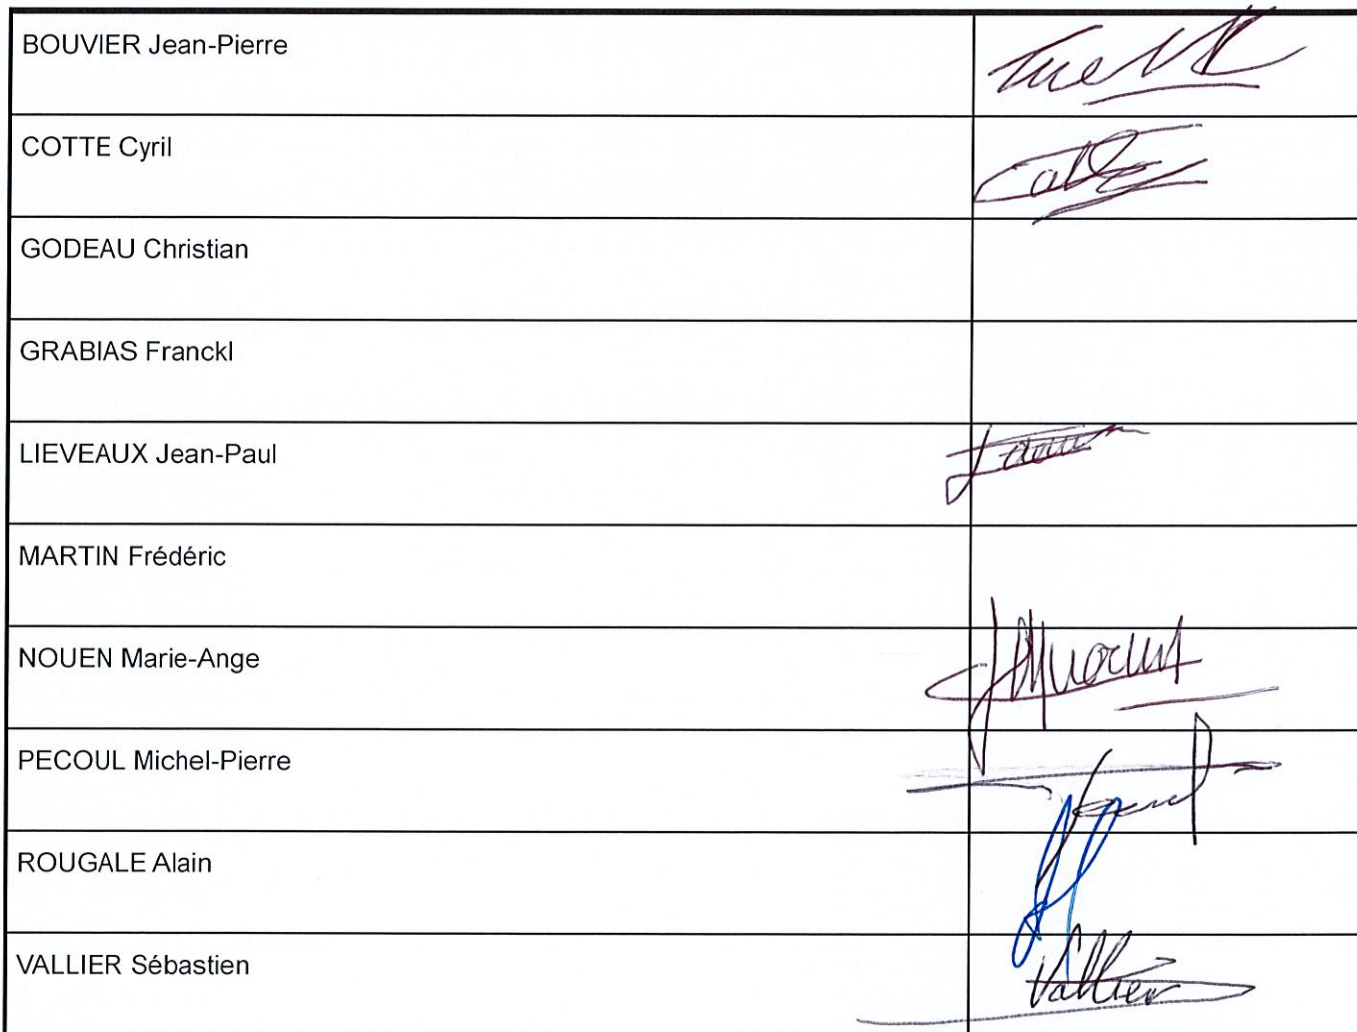 BOUVIER Jean-Pierre
COTTE Cyril
GODEAU Christian
GRABIAS Franckl
LIEVEAUX Jean-Paul
MARTIN Frédéric
NOUEN Marie-Ange
PECOUL Michel-Pierre
ROUGALE Alain
VALLIER Sébastien
Vallier